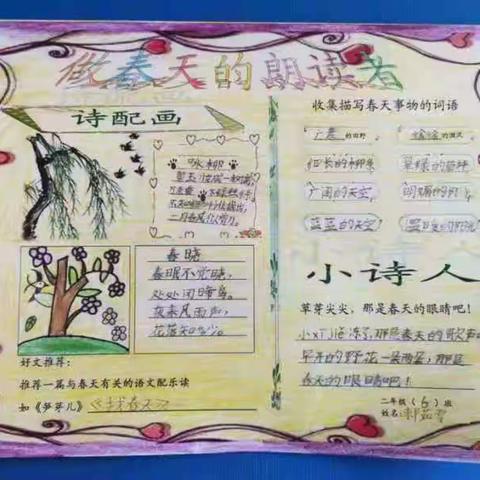 做春天的朗读者
诗配画
咏柳
碧玉妆成一树高,
万条垂下绿丝绦。
不知细叶谁裁出,
二月春风似剪刀。
春晓
春眠不觉晓,
处处闻啼鸟。
夜来风雨声,
花落知多少。
好文推荐:
推荐一篇与春天有关的语文配乐读
如《笋芽儿》《找春天》
收集描写春天事物的词语
的田野
的
的柳条
的
广阔的天空
明媚的
蓝蓝的天空
的阳光
小诗人
草芽尖尖,那是春天的眼睛吧!
小 那是春天的 声
早开的野花一朵两朵,那是
春天的眼睛吧!
二年级(6)班
姓名: